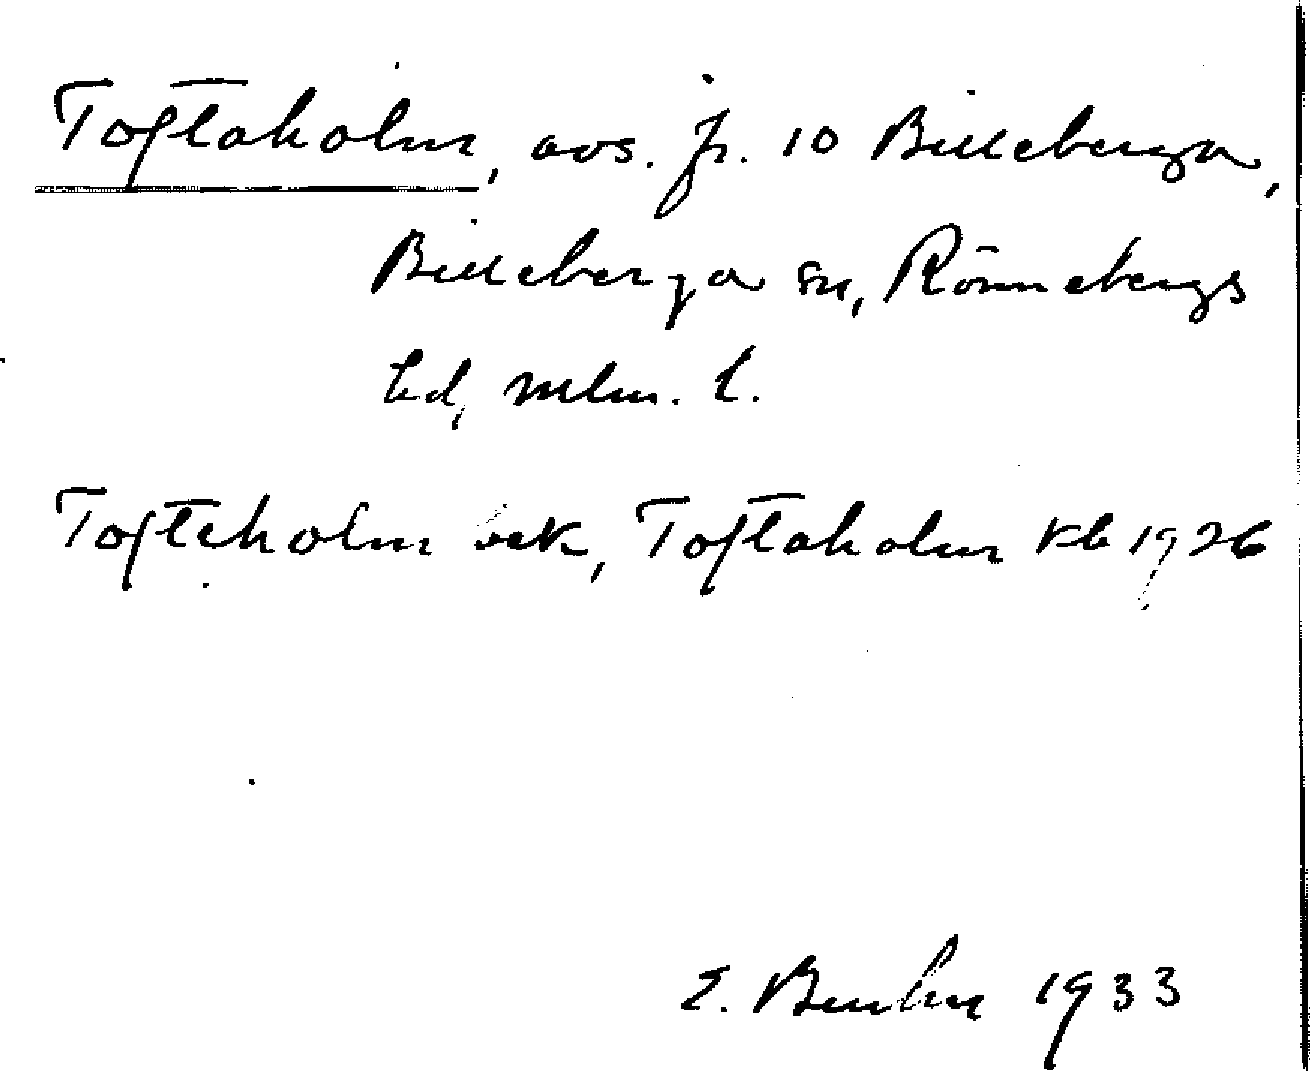 Toftaholm, avs. fr. 10 Billeberga,
Billeberga sn, Rönnebergs
hd, Mlm. l.
Tofteholm eck, Toftaholm kb 1926
1933